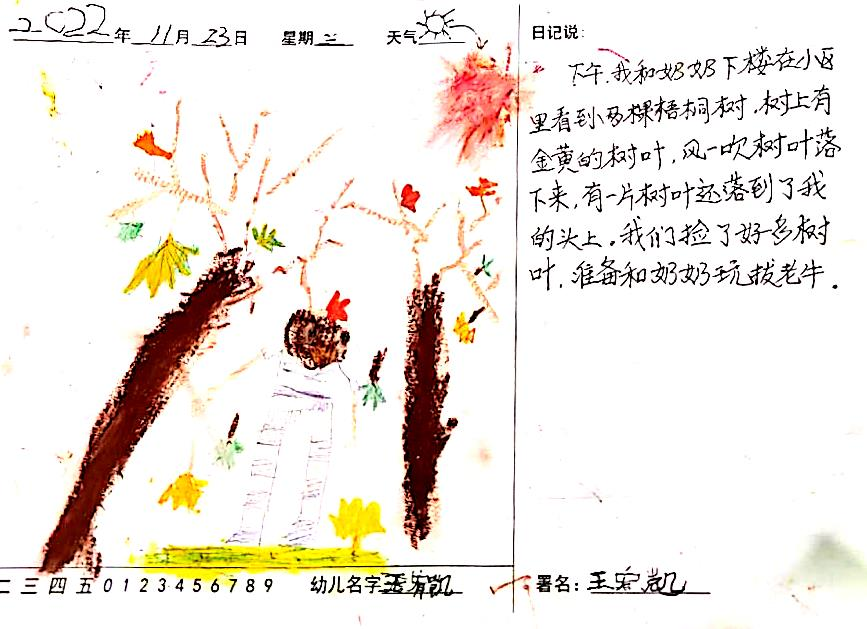 2022年 11月 23日 星期三 天气
日记说:
下午,我和奶奶下楼在小区
里看到小区棵梧桐树,树上有
金黄的树叶,风一吹树叶落
下来,有一片树叶还落到了我
的头上。我们捡了好多树
叶,准备和奶奶玩拔老牛。
二 三 四 五 0 1 2 3 4 5 6 7 8 9 幼儿名字 王宥凯
署名: 王宥凯